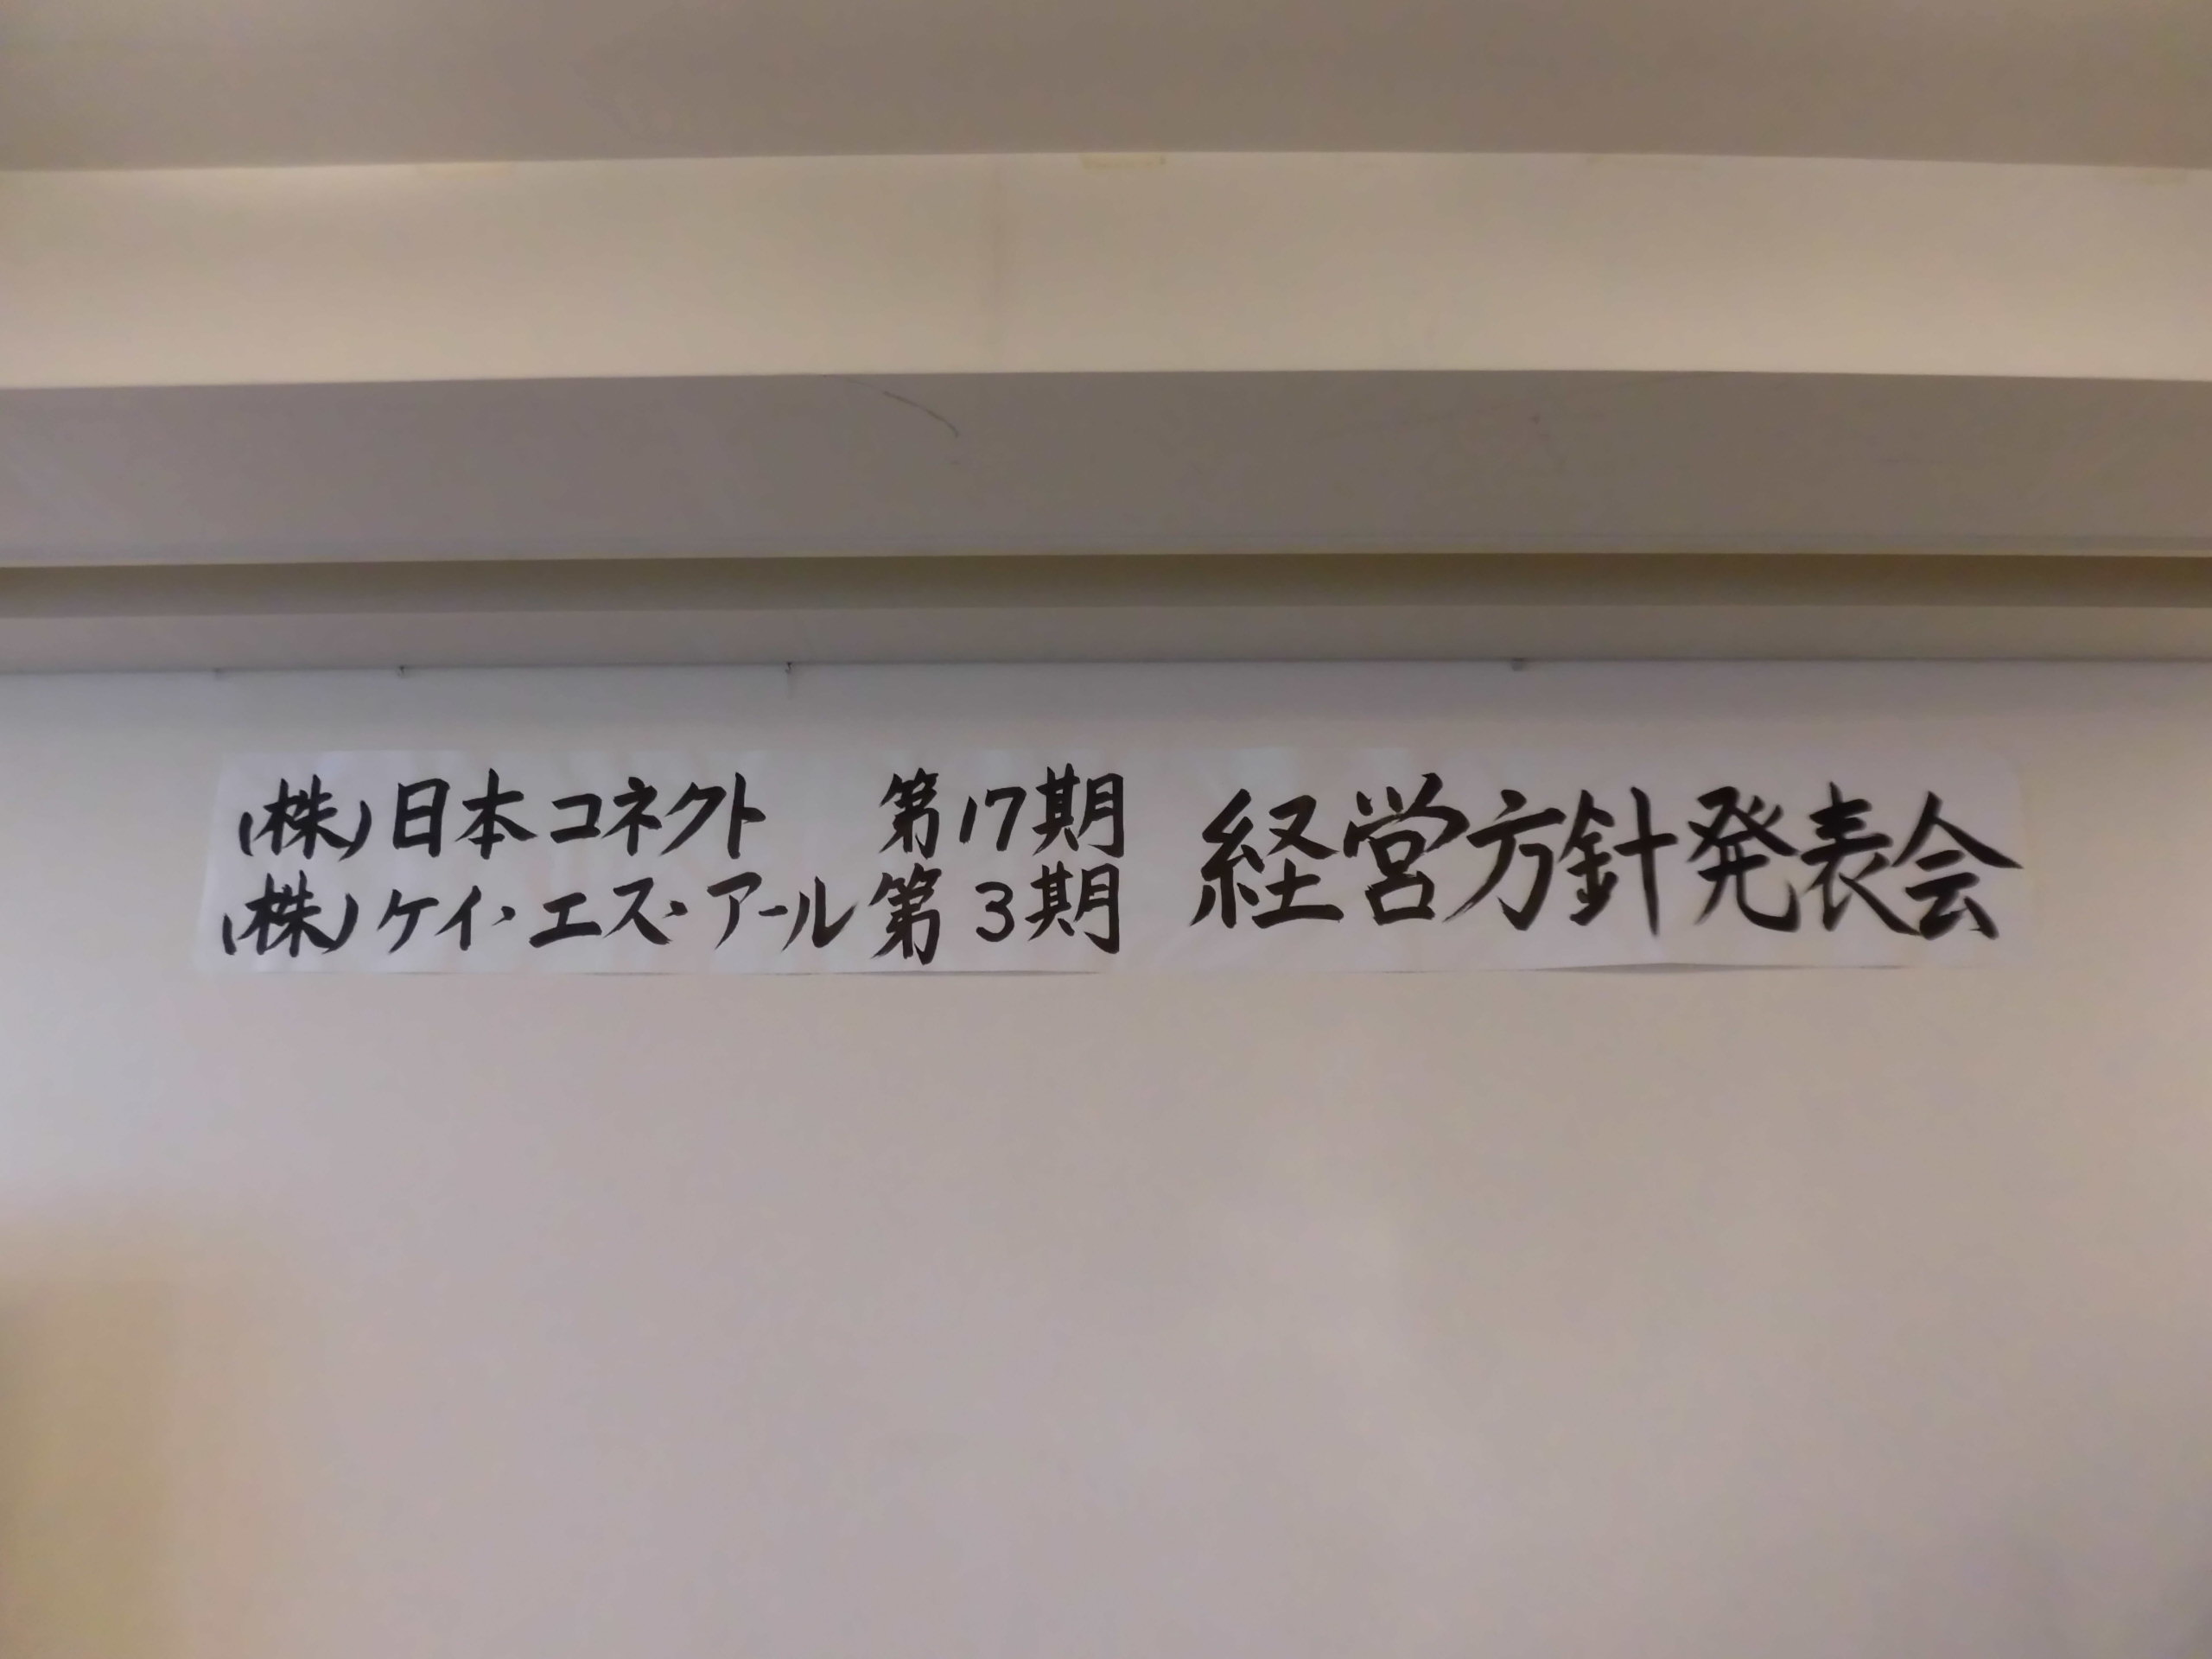 (株)日本コネクト 第17期
(株)ケイ・エス・アール第3期
経営方針発表会